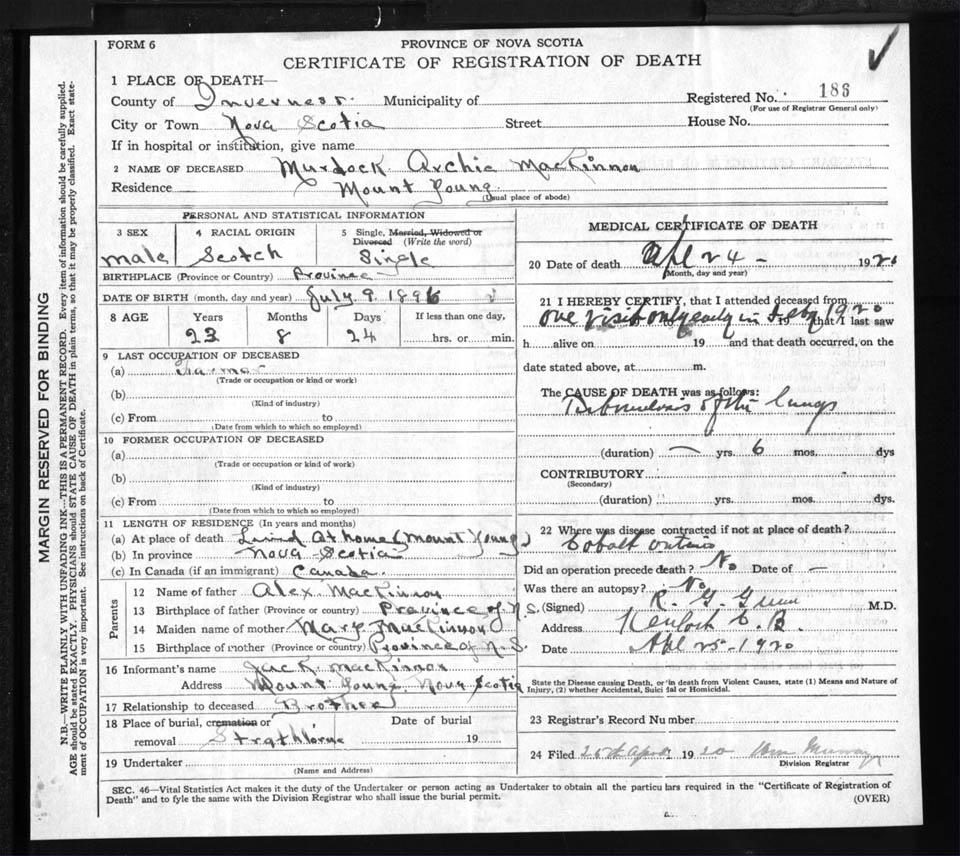 FORM 6
PROVINCE OF NOVA SCOTIA
CERTIFICATE OF REGISTRATION OF DEATH
1 PLACE OF DEATH—
County of Inverness. Municipality of
Registered No. 186
(For use of Registrar General only)
City or Town Nova Scotia Street House No.
If in hospital or institution, give name
2 NAME OF DECEASED Murdock Archie MacKinnon
Residence Mount Young
(Usual place of abode)
PERSONAL AND STATISTICAL INFORMATION
3 SEX 4 RACIAL ORIGIN 5 Single, Married, Widowed or
Divorced (Write the word)
male Scotch Single
BIRTHPLACE (Province or Country) Province
DATE OF BIRTH (month, day and year) July 9. 1896
8 AGE Years Months Days If less than one day,
23 8 24 hrs. or min.
9 LAST OCCUPATION OF DECEASED
(a) Farmer
(Trade or occupation or kind or work)
(b)
(Kind of industry)
(c) From to
(Date from which to which so employed)
10 FORMER OCCUPATION OF DECEASED
(a)
(Trade or occupation or kind of work)
(b)
(Kind of industry)
(c) From to
(Date from which to which so employed)
11 LENGTH OF RESIDENCE (In years and months)
(a) At place of death Lived At home (Mount Young)
(b) In province Nova Scotia
(c) In Canada (if an immigrant) Canada.
Parents
12 Name of father Alex MacKinnon
13 Birthplace of father (Province or country) Province of N.S.
14 Maiden name of mother Mary MacKinnon
15 Birthplace of mother (Province or country) Province of N.S.
16 Informant's name Jack MacKinnon
Address Mount Young Nova Scotia
17 Relationship to deceased Brother
18 Place of burial, cremation or Date of burial
removal Strathlorne 19
19 Undertaker
(Name and Address)
MEDICAL CERTIFICATE OF DEATH
20 Date of death Apl 24 - 1920
(Month, day and year)
21 I HEREBY CERTIFY, that I attended deceased from
one visit only early in Feby 1920
19 that I last saw
h alive on 19 and that death occurred, on the
date stated above, at m.
The CAUSE OF DEATH was as follows:
Tuberculosis of the lungs
(duration) — yrs. 6 mos. dys
CONTRIBUTORY
(Secondary)
(duration) yrs. mos. dys.
22 Where was disease contracted if not at place of death?
Cobalt Ontario
Did an operation precede death? No Date of —
Was there an autopsy? No
(Signed) R. G. M.D.
Address Kenloch C.B.
Date Apl 25 - 1920
State the Disease causing Death, or in death from Violent Causes, state (1) Means and Nature of
Injury, (2) whether Accidental, Suicidal or Homicidal.
23 Registrar's Record Number
24 Filed 26th April 1920 Wm Murray
Division Registrar
SEC. 46—Vital Statistics Act makes it the duty of the Undertaker or person acting as Undertaker to obtain all the particulars required in the "Certificate of Registration of
Death" and to fyle the same with the Division Registrar who shall issue the burial permit.
(OVER)
MARGIN RESERVED FOR BINDING
N.B.—WRITE PLAINLY WITH UNFADING INK—THIS IS A PERMANENT RECORD. Every item of information should be carefully supplied.
AGE should be stated EXACTLY. PHYSICIANS should STATE CAUSE OF DEATH in plain terms, so that it may be properly classified. Exact state-
ment of OCCUPATION is very important. See instructions on back of Certificate.